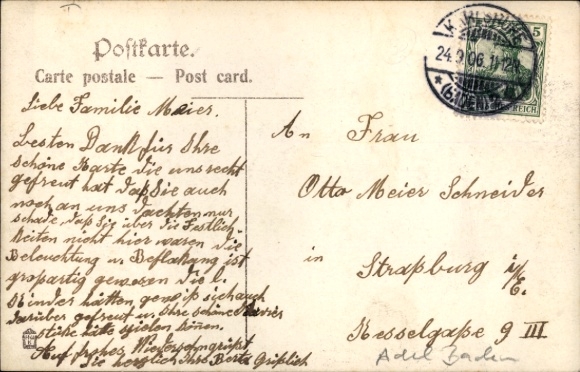 Postkarte.
Carte postale — Post card.
KARLSRUHE
24.9.06. 11-12V
* (BADEN)
5
REICH
Liebe Familie Meier.
Besten Dank für Ihre
schöne Karte die uns recht
gefreut hat daß Sie auch
noch an uns dachten nur
schade, daß Sie über die Festlich-
keiten nicht hier waren die
Beleuchtung u Beflakung ist
großartig gewesen die l.
Kinder hätten gewiß sich auch
darüber gefreut u. Ihre schöne Klavier
stücke hätte spielen hören.
Auf frohes Wiedersehn grüßt
Sie herzlich Ihre Berta
An Frau
Otto Meier Schneider
in
Straßburg i/E.
Kesselgaße 9 III
Adel Baden